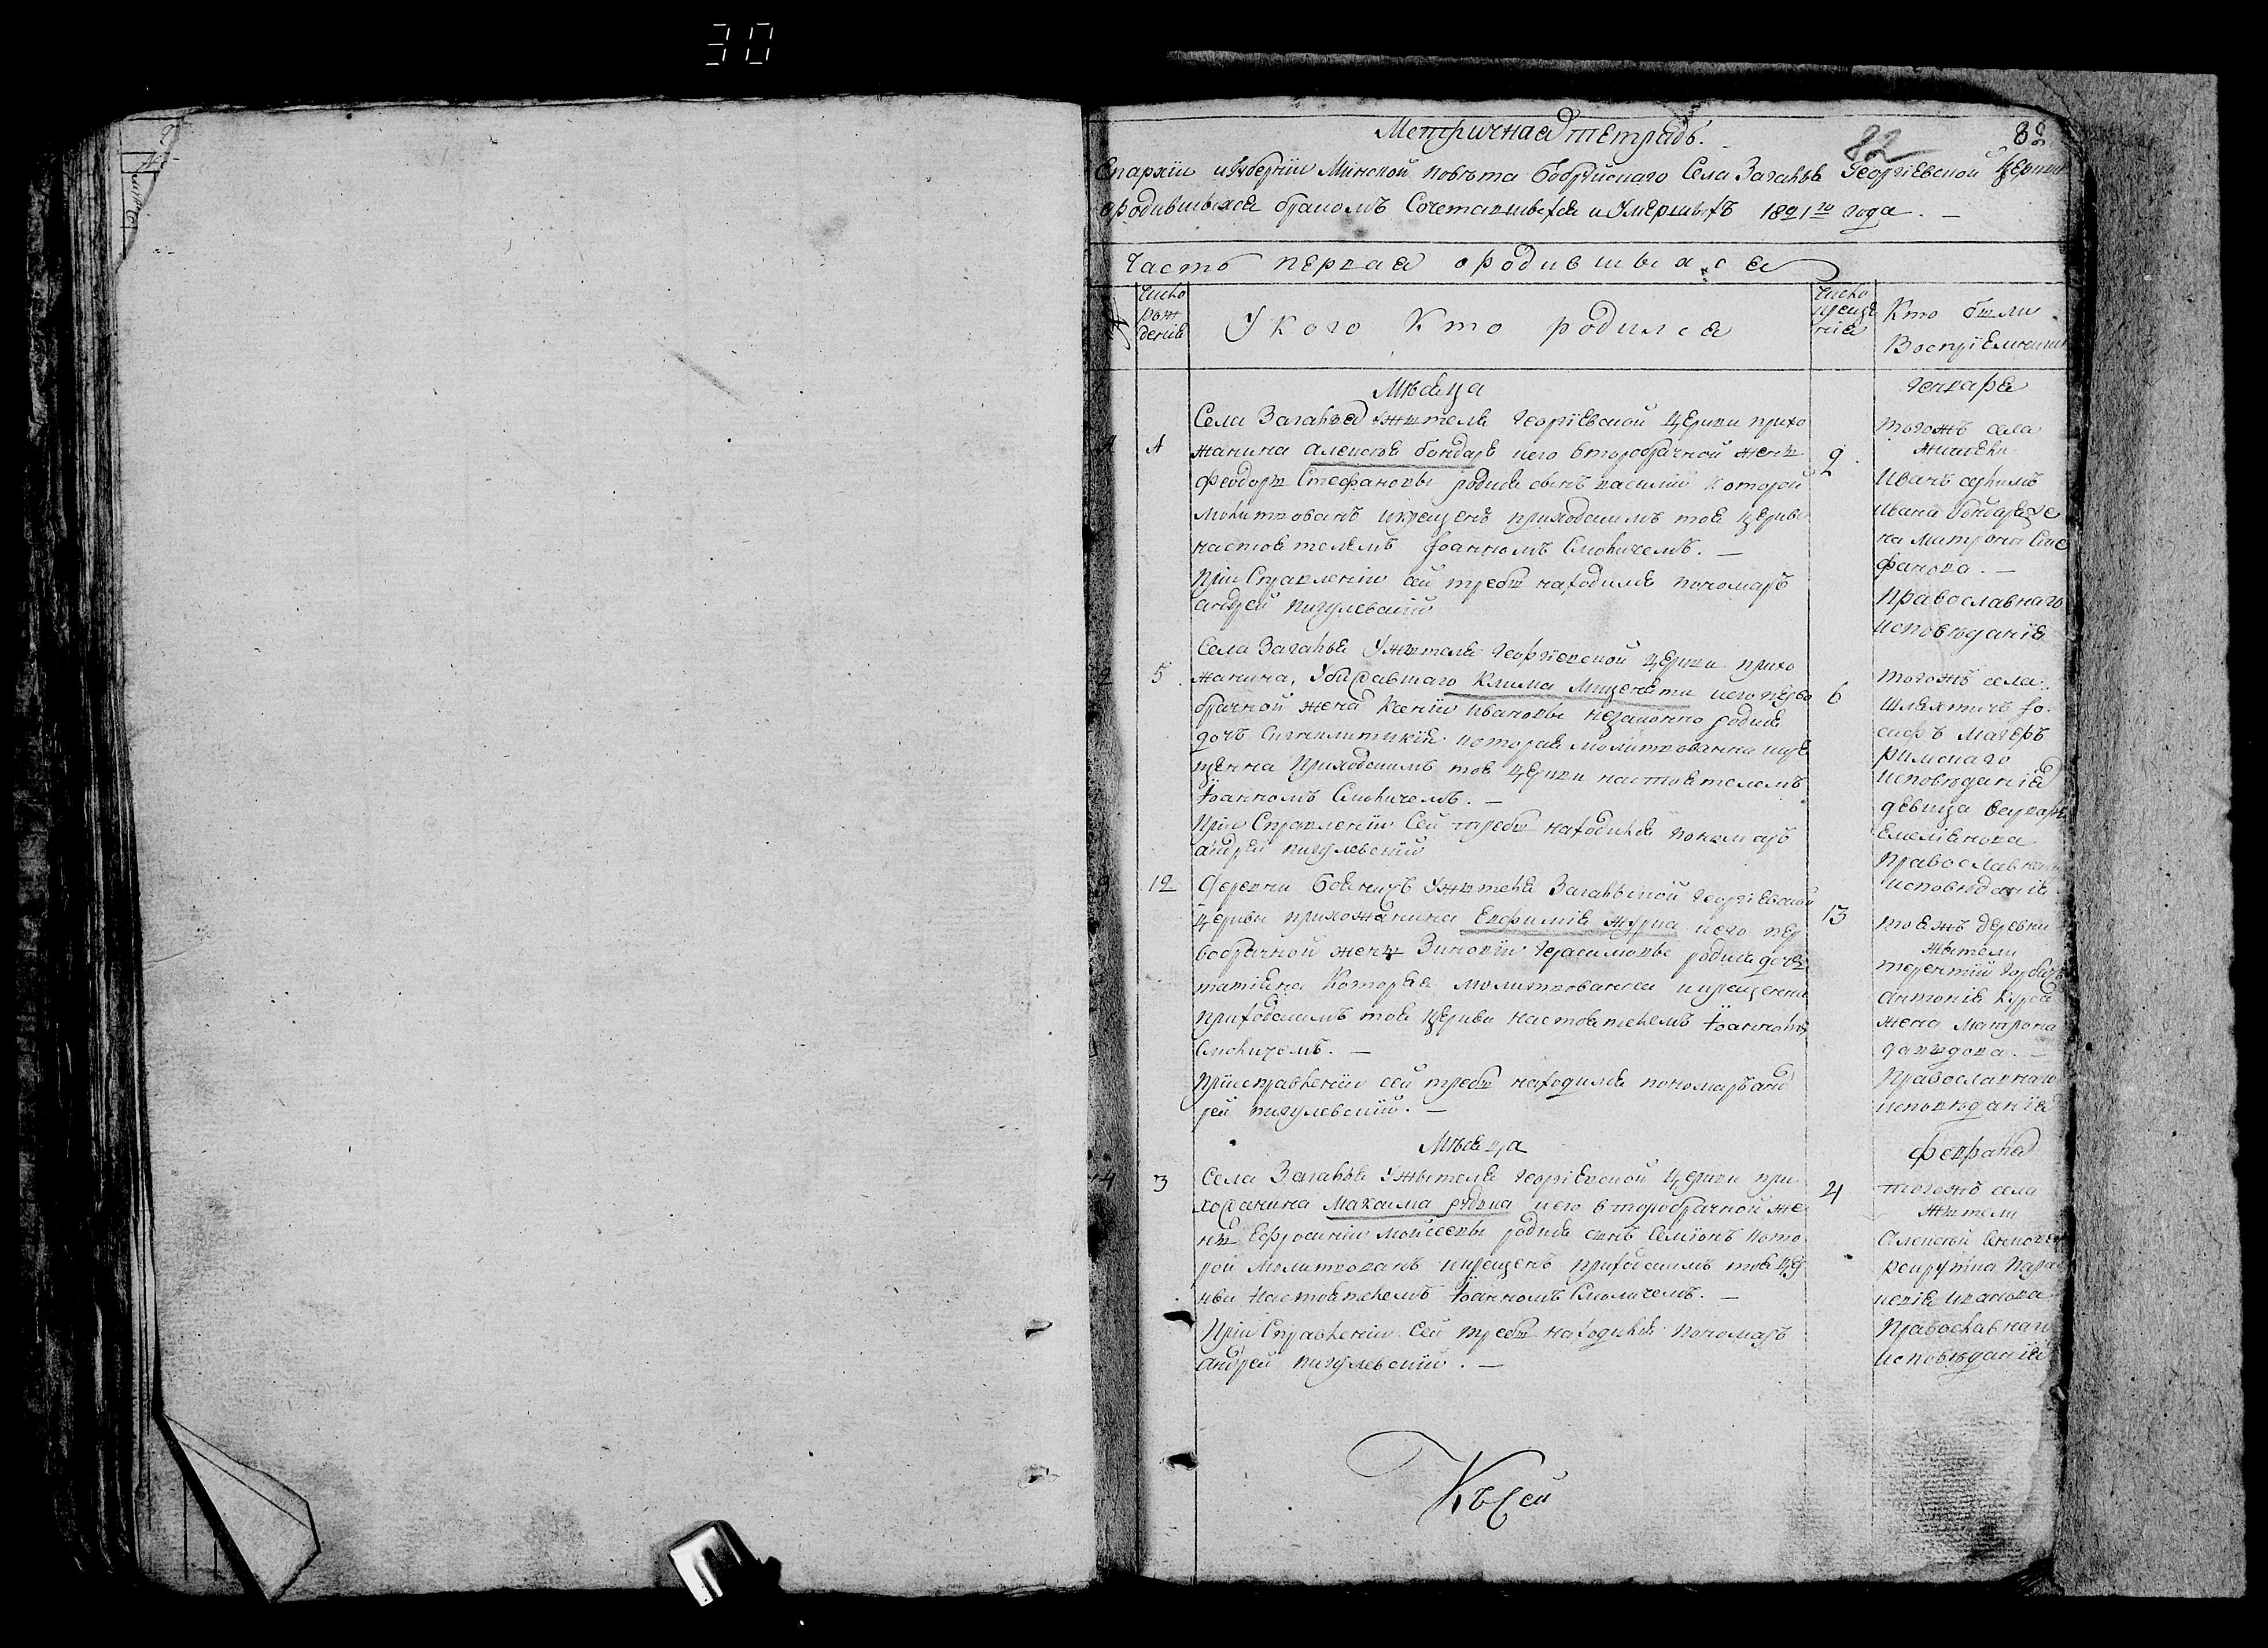 30
Метричная тетрадь.
82
82
Епархіи и Губерніи Минской повѣта Бобруйскаго Села Загалья Георгіевской Церкви
о родившыхся бракомъ Сочетавшыхся и Умершыхъ 1821го года. —
Часть первая о родившыхся
Число рожденія
У кого Кто родился
Число крещенія
Кто были Воспріемники
Мѣсяца
Генваря
Села Загалья Ужителя Георгіевской Церкви прихо
1 1 жанина Алексѣя Бондаря и его второбрачной жены
Феодоры Стефановы родился сынъ Василій которой
молитвованъ и крещенъ приходскимъ тоя Церкви
настоятелемъ Іоанномъ Смоличемъ. —
При Справленіи сей требы находился пономаръ
Андрей Пигулевскій
2
тогожъ села
жители
Иванъ
Ивана Бондаря же
на Матрона Сте
фанова. —
Православнаго
исповѣданія
Села Загалья Ужителя Георгіевской Церкви прихо
2 5 жанина, Клима и его перво
брачной жена Ксеніи Ивановы незаконно родися
дочъ которая молитвованна и кре
щенна приходскимъ тоя Церкви настоятелемъ
Іоанномъ Смоличемъ. —
При Справленіи Сей требы находился пономаръ
Андрей Пигулевскій
6
тогожъ села
Шляхтичъ Іо
сифъ
римскаго
исповѣданія
дѣвица
Емеліянова
Православнаго
исповѣданія
3 12 Деревни Ужителя Загальской Георгіевской
Церкви прихожанина Евфимія Журна и его пер
вобрачной жены Зиновіи Герасимовы родися дочъ
татіяна Которая молитвованна и крещенна
приходскимъ тоя Церкви настоятелемъ Іоанномъ
Смоличемъ. —
При справленіи сей требы находился пономаръ Анд
рей Пигулевскій. —
13
тоежъ деревни
жители
терентій Горбачъ
Антонія
жена Матрона
Давыдова. —
Православнаго
исповѣданія
Мѣсяца
Февраля
4 3 Села Загалья Ужителя Георгіевской Церкви при
хожанина Максима и его второбрачной же
ны Ефросиніи Мойсеевы родися сынъ Семіонъ кото
рой молитвованъ и крещенъ приходскимъ тоя Цер
кви Настоятелемъ Іоанномъ Смоличемъ. —
При Справленіи Сей требы находился пономаръ
Андрей Пигулевскій. —
4
тогожъ села
жители
Алексѣй
Пара
Иванова
Православнаго
исповѣданія
Къ Сей